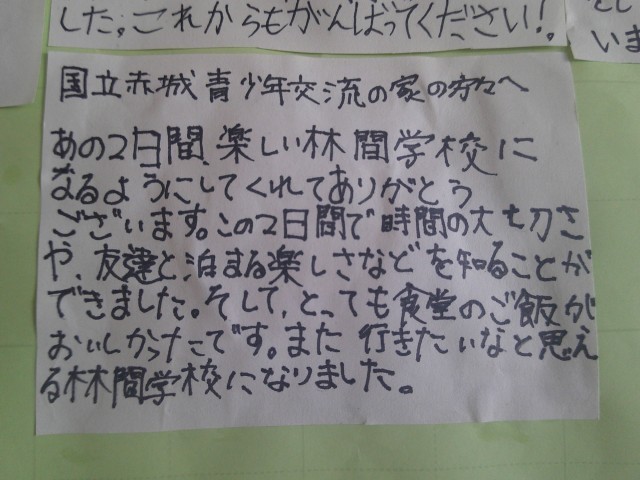 した。これからもがんばってください!
とし
いま
国立赤城青少年交流の家の方々へ
あの2日間、楽しい林間学校に
なるようにしてくれてありがとう
ございます。この2日間で時間の大切さ
や、友達と泊まる楽しさなどを知ることが
できました。そして、とっても食堂のご飯が
おいしかったです。また行きたいなと思え
る林間学校になりました。